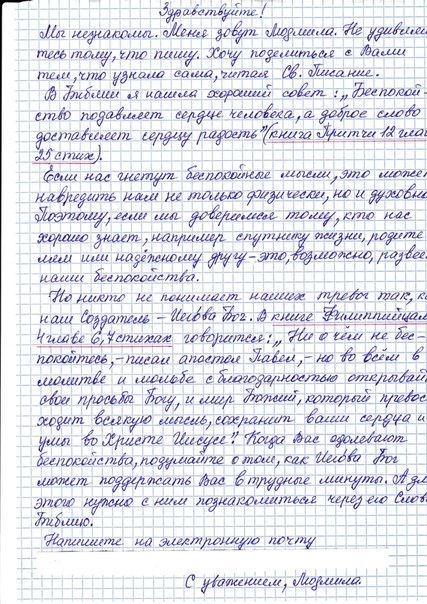 Здравствуйте!
Мы незнакомы. Меня зовут Людмила. Не удивляй
тесь тому, что пишу. Хочу поделиться с Вами
тем, что узнала сама, читая Св. Писание.
В Библии я нашла хороший совет: „Беспокой-
ство подавляет сердце человека, а доброе слово
доставляет сердцу радость" (книга Притчи 12 глав
25 стих).
Если нас гнетут беспокойные мысли, это может
навредить нам не только физически, но и духовно.
Поэтому, если мы доверимся тому, кто нас
хорошо знает, например спутнику жизни, родите
лям или надёжному другу - это, возможно, развее
наши беспокойства.
Но никто не понимает наших тревог так, ка
наш Создатель - Иегова Бог. В книге Филиппийцам
4 главе 6,7 стихах говорится: „Ни о чём не бес-
покойтесь, - писал апостол Павел, - но во всём в
молитве и мольбе с благодарностью открывай
свои просьбы Богу, и мир Божий, который превос
ходит всякую мысль, сохранит ваши сердца и
умы во Христе Иисусе". Когда Вас одолевают
беспокойства, подумайте о том, как Иегова Бог
может поддержать Вас в трудные минуты. А дл
этого нужно с ним познакомиться через его Слов
Библию.
Напишите на электронную почту
С уважением, Людмила.